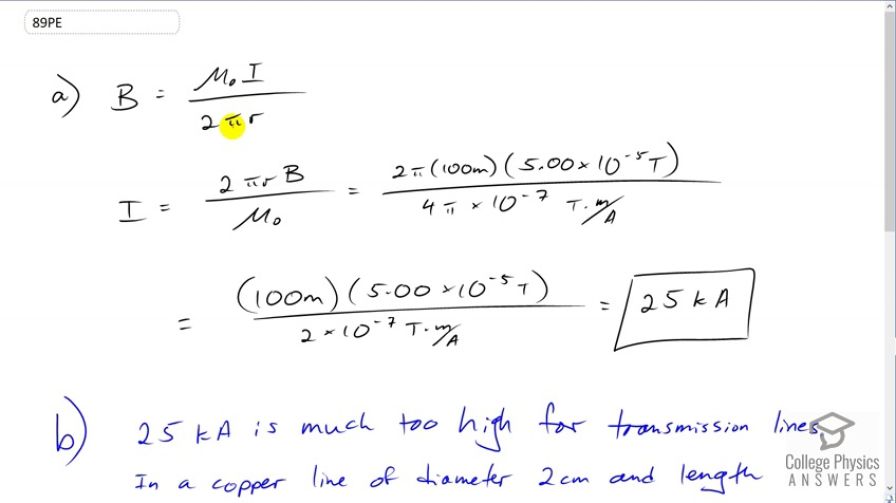 89PE
a) B = μ₀ I / 2 π r
I = 2 π r B / μ₀ = 2π (100m) (5.00 × 10⁻⁵ T) / 4 π × 10⁻⁷ T·m/A
= (100m) (5.00 × 10⁻⁵ T) / 2 × 10⁻⁷ T·m/A = 25 kA
b) 25 kA is much too high for transmission lines.
In a copper line of diameter 2cm and length
College Physics
ANSWERS